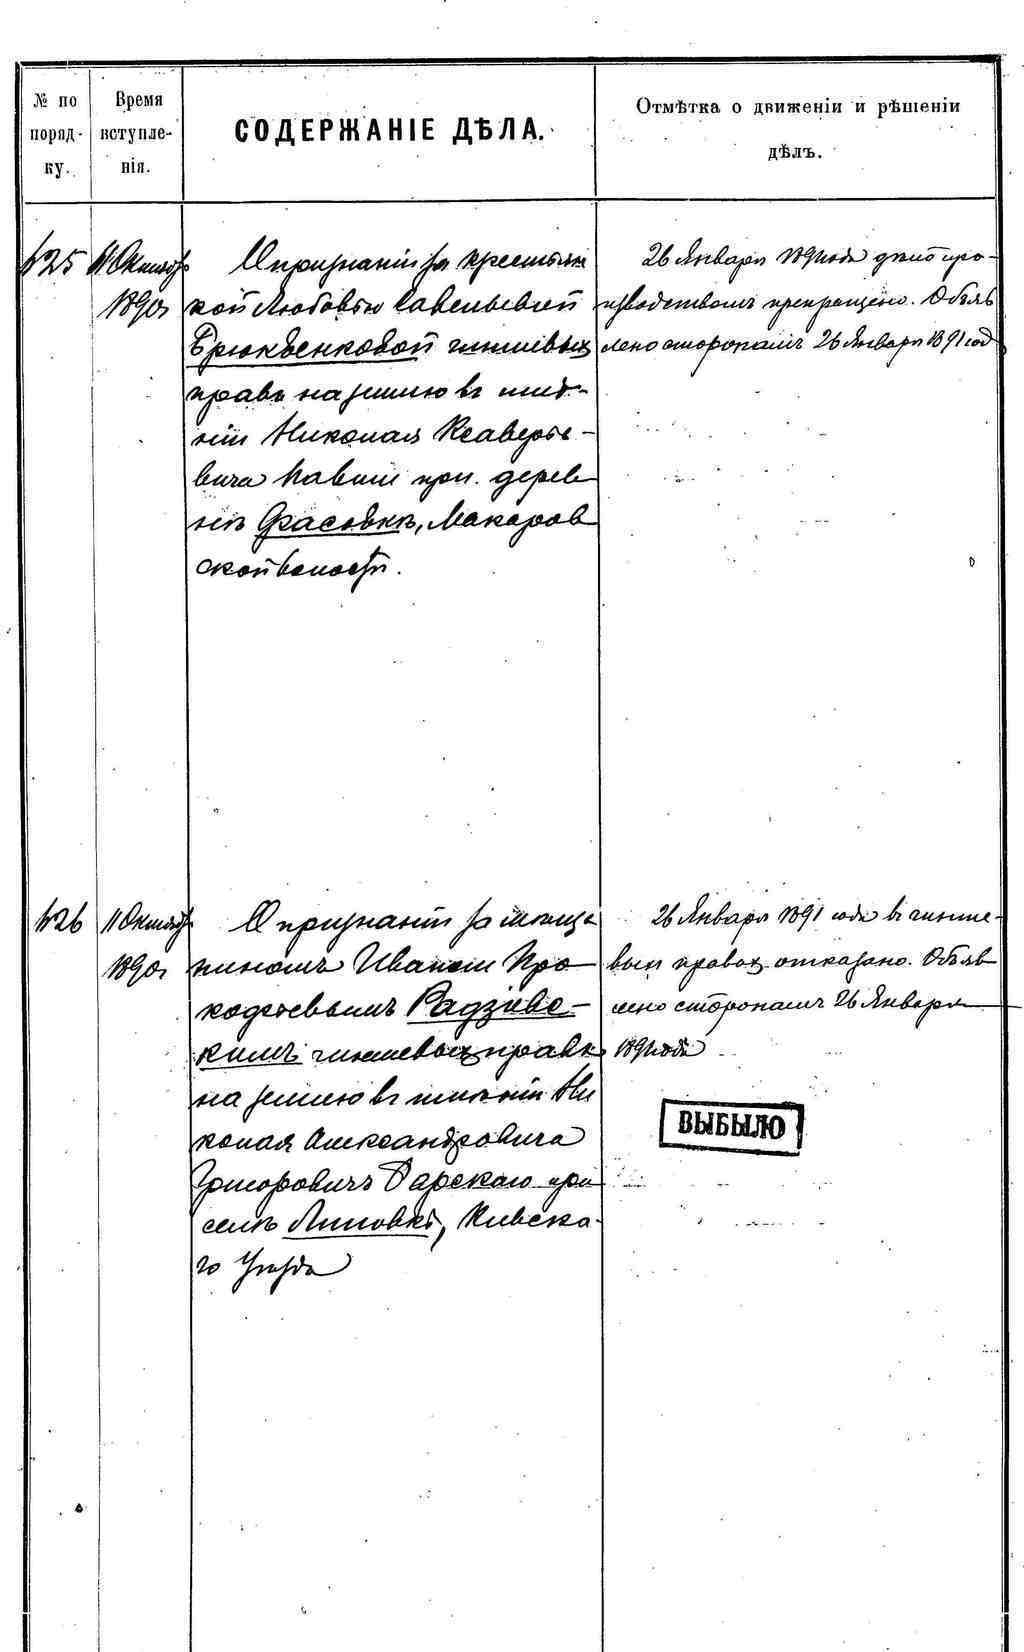 № по поряд- ку.
Время вступле- нія.
СОДЕРЖАНІЕ ДѢЛА.
Отмѣтка о движеніи и рѣшеніи
дѣлъ.
625
11 Октября
1890 г
О признаніи за крестьян
кой Любовью Савельевой
Брюквенковой чиншевыхъ
правъ на землю въ имѣ-
ніи Николая Ксаверье-
вича при дерев
нѣ Фасовкѣ, Макаров
ской волости.
26 Января 1891 года дѣло про-
изводствомъ прекращено. Объяв
лено сторонамъ 26 Января 1891 год
626
11 Октября
1890 г
О признаніи за мѣща
ниномъ Иваномъ Про
кофьевымъ Радзіевс-
кимъ чиншевыхъ правъ
на землю въ имѣніи Ни
колая Александровича
Григоровичъ Барскаго при
селѣ Липовкѣ, Кіевска-
го Уѣзда
26 Января 1891 года въ чинше-
выхъ правахъ отказано. Объяв
лено сторонамъ 26 Января
1891 года
ВЫБЫЛО